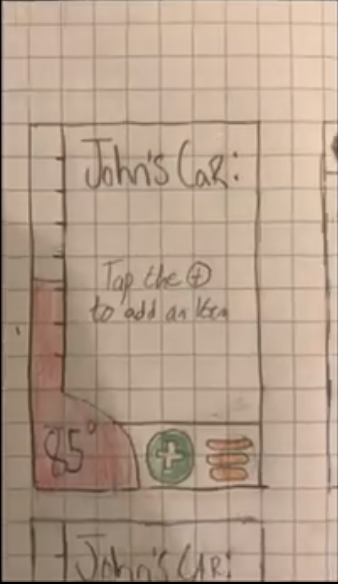 John's Car:
Tap the ⊕
to add an Item
85°
John's CAR: